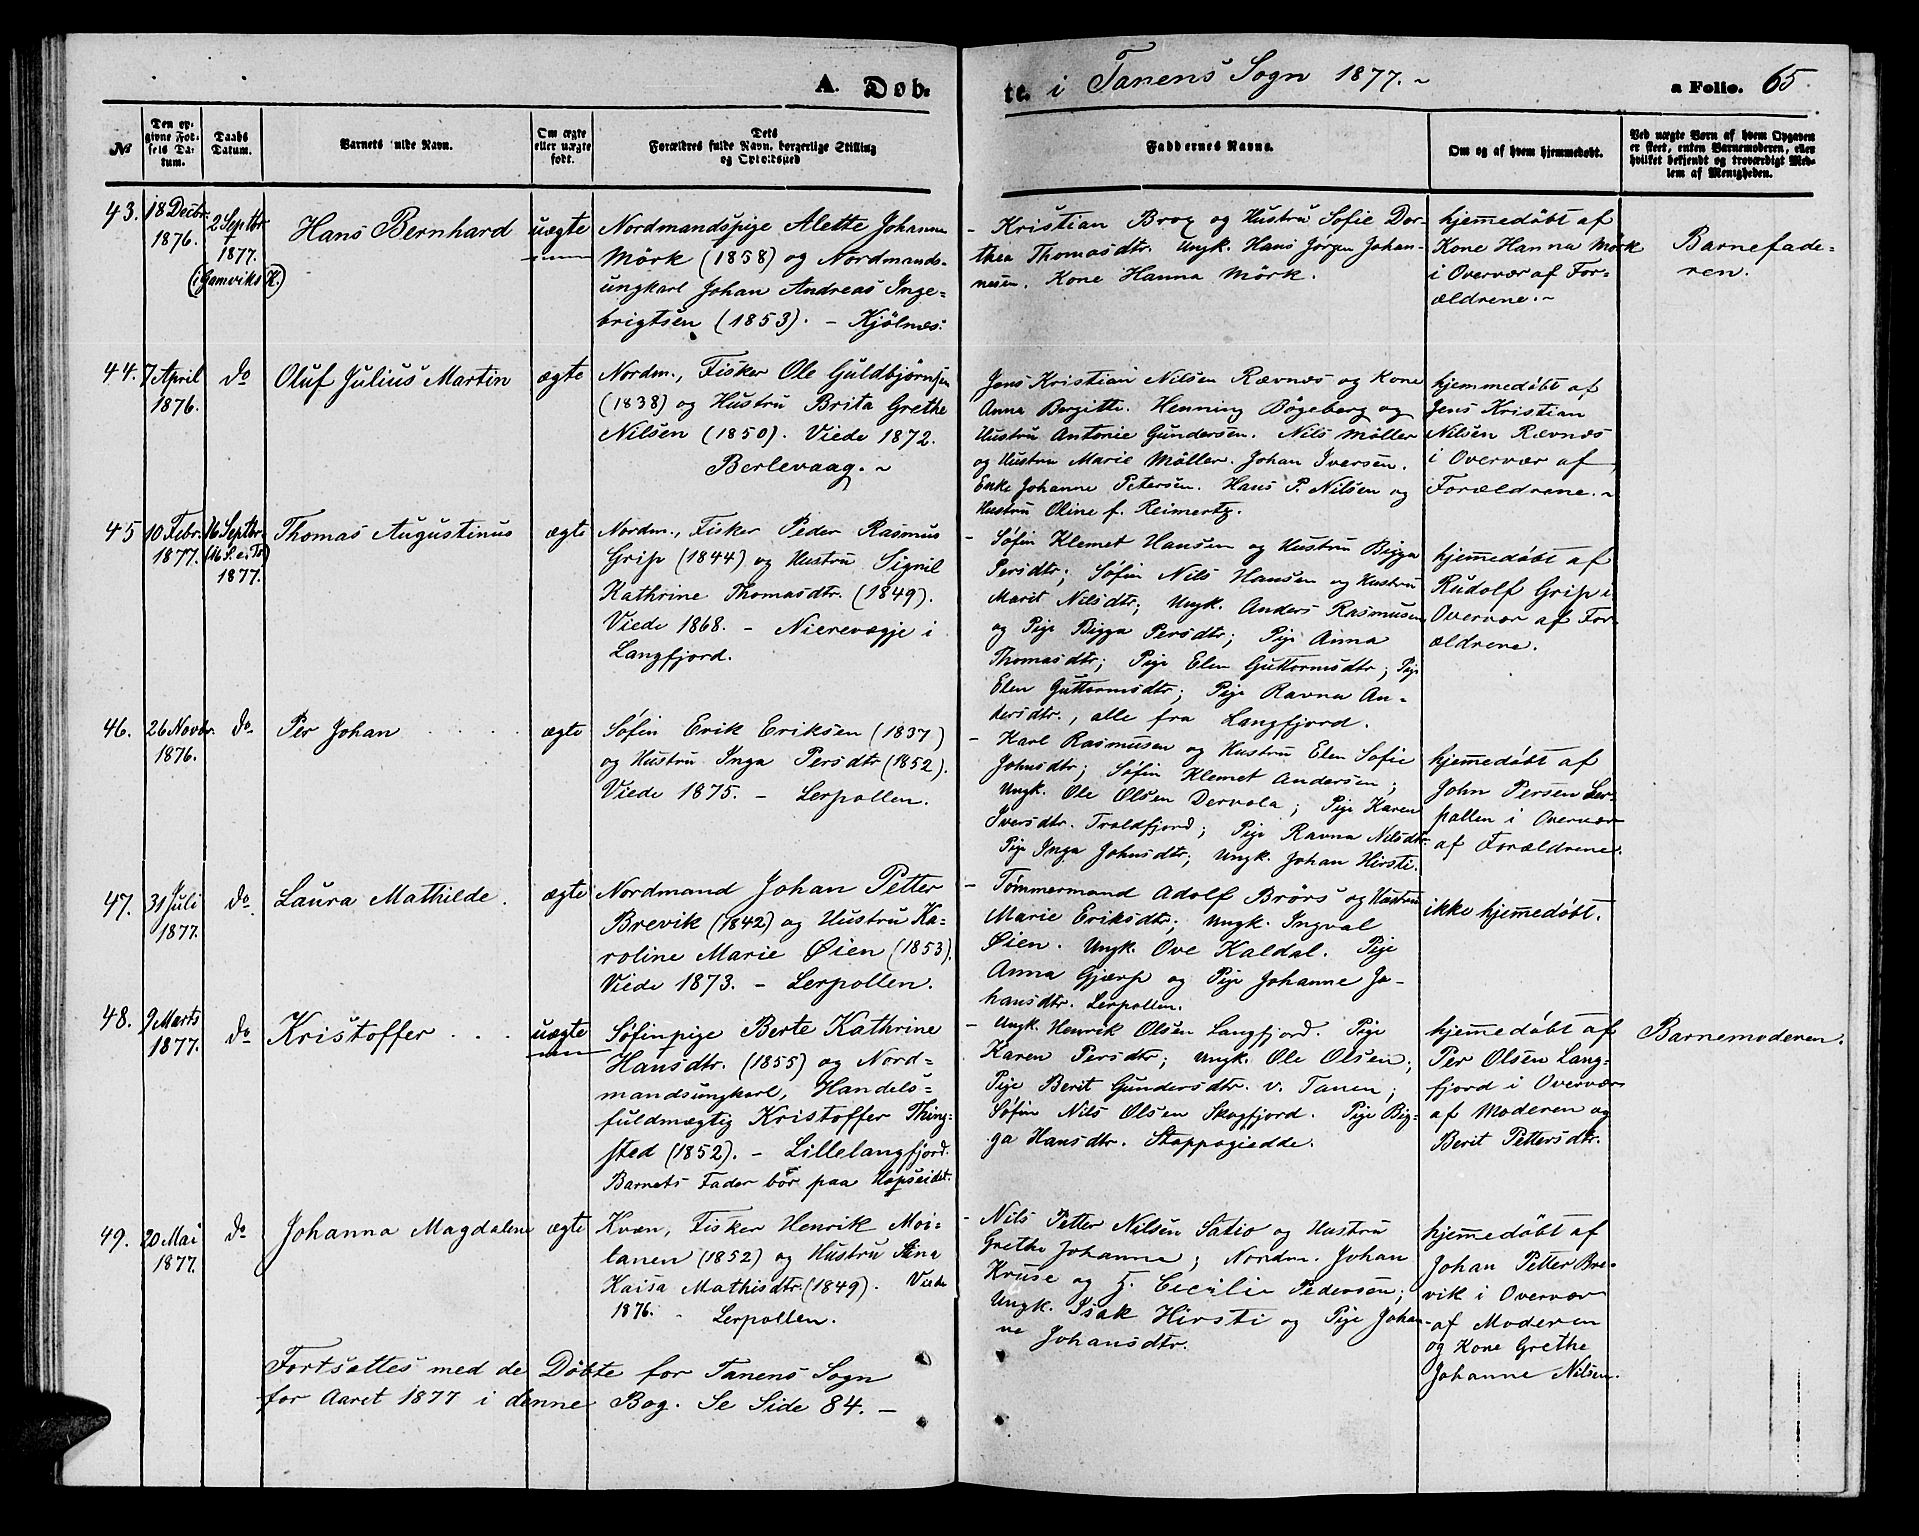 A. Døb-
te. i Tanens Sogn 1877. ~
a Folio. 65.
No
Den op-
givne Fød-
sels Da-
tum.
Daabs
Datum.
Barnets fulde Navn.
Om ægte
eller uægte
født.
Dets
Forældres fulde Navn, borgerlige Stilling
og Opholdssted
Faddernes Navne.
Om og af hvem hjemmedøbt.
Ved uægte Børn af hvem Opgaven
er skeet, enten Barnemoderen, eller
hvilket bekjendt og troværdigt Med-
lem af Menigheden.
43.
18 Decbr.
1876.
2 Septbr.
1877.
(i Gamviks K.)
Hans Bernhard
uægte
Nordmandspige Alette Johanne
Mörk (1858) og Nordmands-
ungkarl Johan Andreas Inge-
brigtsen (1853). - Kjölnæs.
- Kristian Brox og Hustru Sofie Dor-
thea Thomasdtr. Ungk. Hans Jørgen Johan-
nesen. Kone Hanna Mörk.
hjemmedøbt af
Kone Hanna Mörk
i Overvær af For-
ældrene. ~
Barnefade-
ren.
44.
7 April
1876.
do
Oluf Julius Martin
ægte
Nordm., Fisker Ole Guldbjørnsen
(1838) og Hustru Brita Grethe
Nilsen (1850). Viede 1872.
Berlevaag. ~
Jens Kristian Nilsen Rævnæs og Kone
Anna Bergitte. Henning Bögeberg og
Hustru Antonie Gundersen. Nils Möller
og Hustru Marie Möller. Johan Iversen.
Enke Johanne Petersen. Hans P. Nilsen og
Hustru Oline f. Reimertz.
hjemmedøbt af
Jens Kristian
Nilsen Rævnæs
i Overvær af
Forældrene. ~
45
10 Febr.
1877.
16 Septbr.
(16 S. e. Tr)
1877.
Thomas Augustinus
ægte
Nordm., Fisker Peder Rasmus
Grip (1844) og Hustru Signil
Kathrine Thomasdtr. (1849).
Viede 1868. - Nierevægje i
Langfjord.
- Søfin Klemet Hansen og Hustru Bigga
Persdtr; Søfin Nils Hansen og Hustru
Marit Nilsdtr; Ungk. Anders Rasmusen
og Pige Bigga Persdtr; Pige Anna
Thomasdtr; Pige Elen Guttormsdtr; Pige
Elen Guttormsdtr; Pige Ravna An-
dersdtr., alle fra Langfjord.
hjemmedøbt af
Rudolf Grip i
Overvær af For-
ældrene.
46.
26 Novbr.
1876.
do
Per Johan
ægte
Søfin Erik Eriksen (1837)
og Hustru Inga Persdtr (1852).
Viede 1875. - Lerpollen.
- Karl Rasmusen og Hustru Elen Sofie
Johnsdtr; Søfin Klemet Andersen;
Ungk. Ole Olsen Dervola; Pige Karen
Iversdtr. Troldfjord; Pige Ravna Nilsdtr.
Pige Inga Johnsdtr; Ungk. Johan Hirsti.
hjemmedøbt af
John Persen Ler-
pallen i Overvær
af Forældrene.
47.
31 Juli
1877.
do.
Laura Mathilde.
ægte
Nordmand Johan Petter
Brevik (1842) og Hustru Ka-
roline Marie Øien (1853).
Viede 1873. - Lerpollen.
- Tømmermand Adolf Brörs og Hustru
Marie Eriksdtr; Ungk. Ingval
Øien. Ungk. Ove Kaldal. Pige
Anna Gjærp og Pige Johanne Jo-
hansdtr. Lerpollen.
ikke hjemmedøbt.
48.
9 Marts
1877.
do
Kristoffer
uægte
Søfinpige Berte Kathrine
Hansdtr. (1855) og Nord-
mandsungkarl, Handels-
fuldmægtig Kristoffer Thing-
sted (1852). - Lillelangfjord.
Barnets Fader bor paa Hopseidet.
- Ungk. Henrik Olsen Langfjord. Pige
Karen Persdtr; Ungk. Ole Olsen;
Pige Berit Gundersdtr. v. Tanen;
Søfin Nils Olsen Skogfjord. Pige Big-
ga Hansdtr. Stoppogiedde.
hjemmedøbt af
Per Olsen Lang-
fjord i Overvær
af Moderen og
Berit Pettersdtr.
Barnemoderen.
49.
20 Mai
1877.
do
Johanna Magdalene
ægte
Kvæn, Fisker Henrik Moi-
lanen (1852) og Hustru Stina
Kaisa Mathisdtr. (1849). Viede
1876. - Lerpollen.
- Nils Petter Nilsen Satio og Hustru
Grethe Johanne; Nordm. Johan
Kruse og H. Cecilie Pedersen;
Ungk. Isak Hirsti og Pige Johan-
ne Johansdtr.
hjemmedøbt af
Johan Petter Bre-
vik i Overvær
af Moderen
og Kone Grethe
Johanne Nilsen.
Fortsattes med de Döbte for Tanens Sogn
for Aaret 1877 i denne Bog. Se Side 84. -